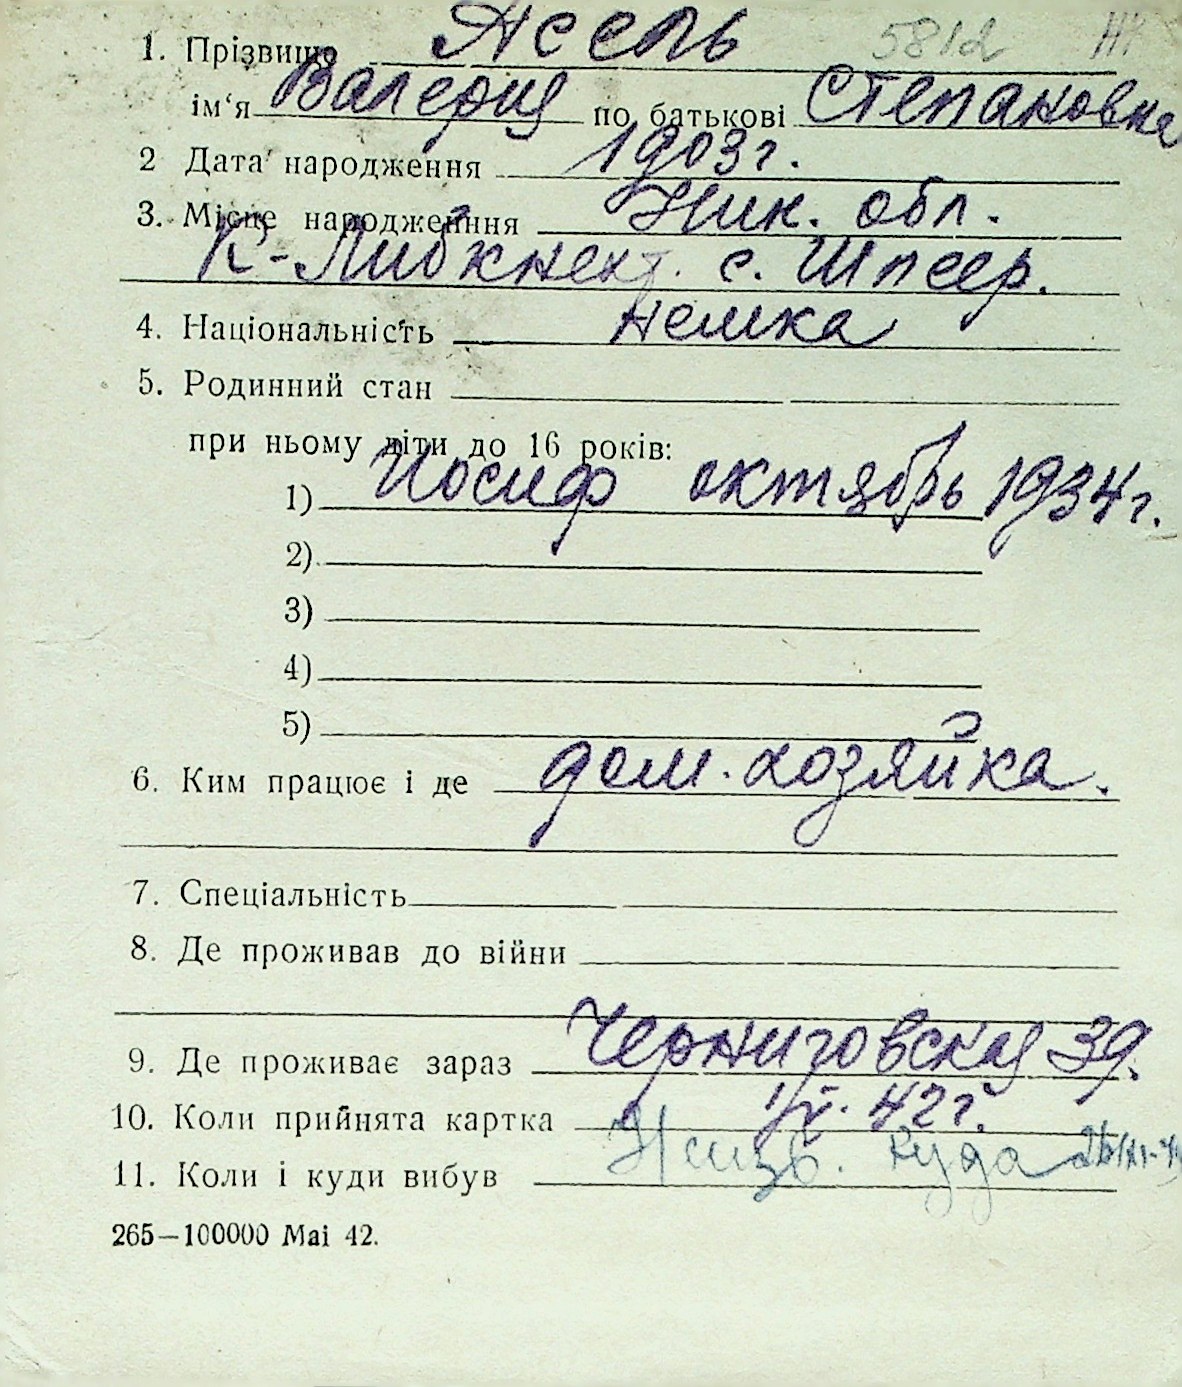 1. Прізвище Яссель 5812
ім'я Валерия по батькові Степановна
2 Дата народження 1903 г.
3. Місце народженння Ник. обл.
К-Либкнехт. с. Шпеер.
4. Національність немка
5. Родинний стан
при ньому діти до 16 років:
1) Иосиф октябрь 1934 г.
2)
3)
4)
5)
6. Ким працює і де дом. хозяйка.
7. Спеціальність
8. Де проживав до війни
9. Де проживає зараз Черниговская 39.
10. Коли прийнята картка 42 г.
11. Коли і куди вибув Неизв. куда
265—100000 Маі 42.